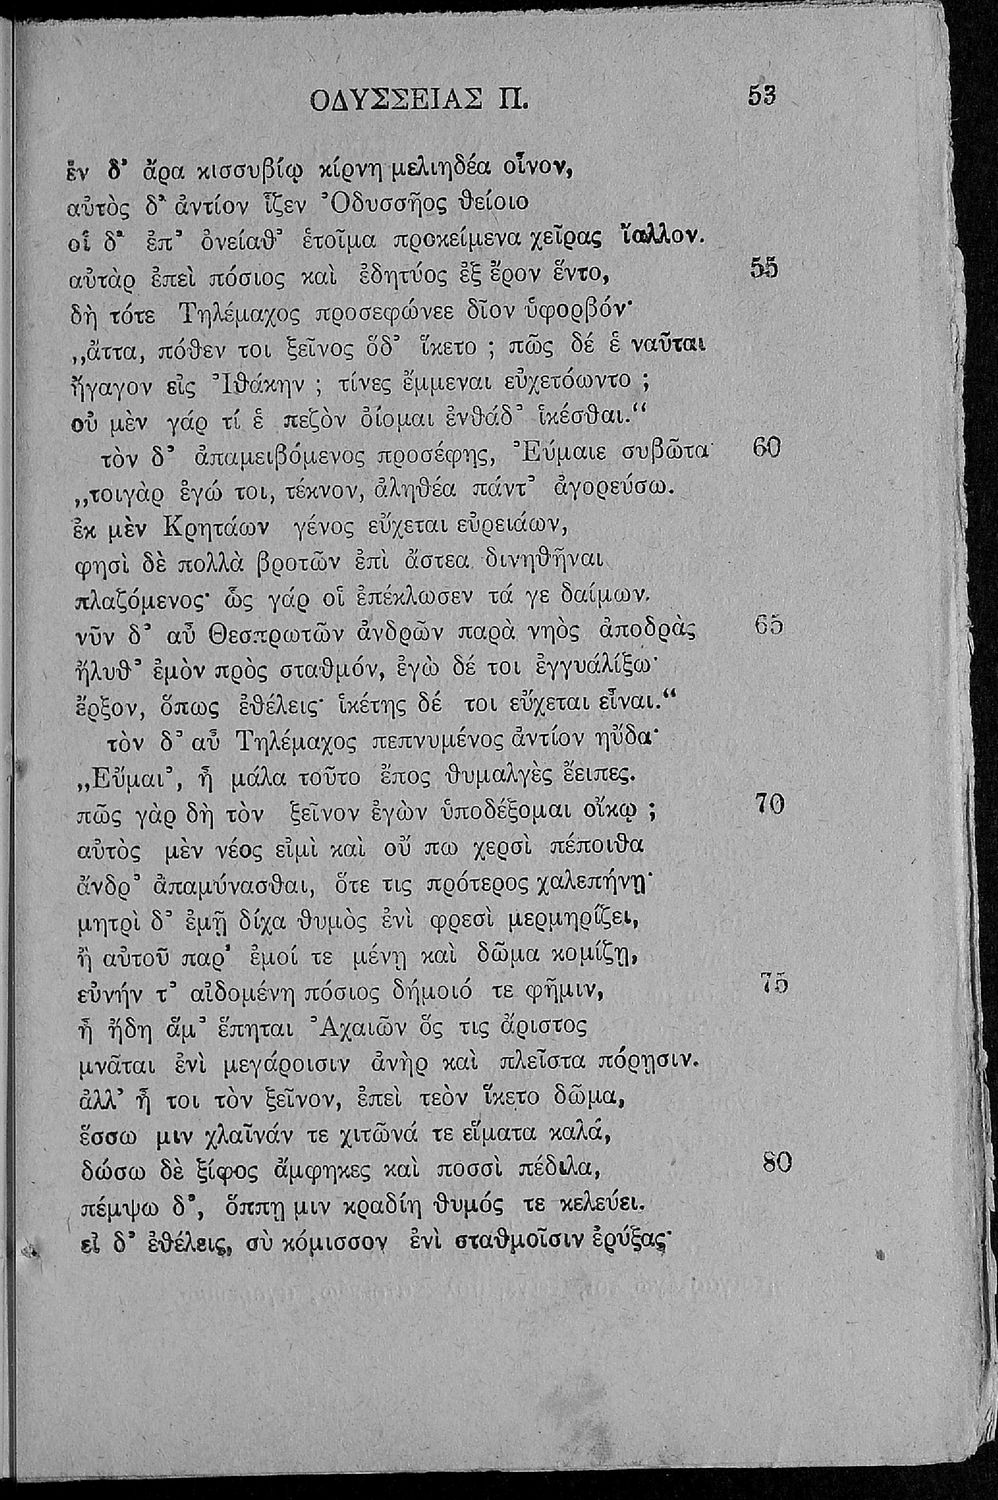 ΟΔΥΣΣΕΙΑΣ Π. 53
ἐν δ' ἄρα κισσυβίῳ κίρνη μελιηδέα οἶνον,
αὐτὸς δ' ἀντίον ἷζεν Ὀδυσσῆος θείοιο
οἱ δ' ἐπ' ὀνείαθ' ἑτοῖμα προκείμενα χεῖρας ἴαλλον.
αὐτὰρ ἐπεὶ πόσιος καὶ ἐδητύος ἐξ ἔρον ἕντο, 55
δὴ τότε Τηλέμαχος προσεφώνεε δῖον ὑφορβόν·
„ἄττα, πόθεν τοι ξεῖνος ὅδ' ἵκετο ; πῶς δέ ἑ ναῦται
ἤγαγον εἰς Ἰθάκην ; τίνες ἔμμεναι εὐχετόωντο ;
οὐ μὲν γάρ τί ἑ πεζὸν ὀίομαι ἐνθάδ' ἱκέσθαι.“
τὸν δ' ἀπαμειβόμενος προσέφης, Ἐύμαιε συβῶτα· 60
„τοιγὰρ ἐγώ τοι, τέκνον, ἀληθέα πάντ' ἀγορεύσω.
ἐκ μὲν Κρητάων γένος εὔχεται εὐρειάων,
φησὶ δὲ πολλὰ βροτῶν ἐπὶ ἄστεα δινηθῆναι
πλαζόμενος· ὣς γάρ οἱ ἐπέκλωσεν τά γε δαίμων.
νῦν δ' αὖ Θεσπρωτῶν ἀνδρῶν παρὰ νηὸς ἀποδρὰς 65
ἤλυθ' ἐμὸν πρὸς σταθμόν, ἐγὼ δέ τοι ἐγγυάλίξω·
ἔρξον, ὅπως ἐθέλεις· ἱκέτης δέ τοι εὔχεται εἶναι.“
τὸν δ' αὖ Τηλέμαχος πεπνυμένος ἀντίον ηὔδα·
„Εὔμαι', ἦ μάλα τοῦτο ἔπος θυμαλγὲς ἔειπες.
πῶς γὰρ δὴ τὸν ξεῖνον ἐγὼν ὑποδέξομαι οἴκῳ ; 70
αὐτὸς μὲν νέος εἰμὶ καὶ οὔ πω χερσὶ πέποιθα
ἄνδρ' ἀπαμύνασθαι, ὅτε τις πρότερος χαλεπήνῃ·
μητρὶ δ' ἐμῇ δίχα θυμὸς ἐνὶ φρεσὶ μερμηρίζει,
ἢ αὐτοῦ παρ' ἐμοί τε μένῃ καὶ δῶμα κομίζῃ,
εὐνήν τ' αἰδομένη πόσιος δήμοιό τε φῆμιν, 75
ἦ ἤδη ἅμ' ἕπηται Ἀχαιῶν ὅς τις ἄριστος
μνᾶται ἐνὶ μεγάροισιν ἀνὴρ καὶ πλεῖστα πόρῃσιν.
ἀλλ' ἦ τοι τὸν ξεῖνον, ἐπεὶ τεὸν ἵκετο δῶμα,
ἕσσω μιν χλαῖνάν τε χιτῶνά τε εἵματα καλά,
δώσω δὲ ξίφος ἄμφηκες καὶ ποσσὶ πέδιλα, 80
πέμψω δ', ὅππῃ μιν κραδίη θυμός τε κελεύει.
εἰ δ' ἐθέλεις, σὺ κόμισσον ἐνὶ σταθμοῖσιν ἐρύξας·